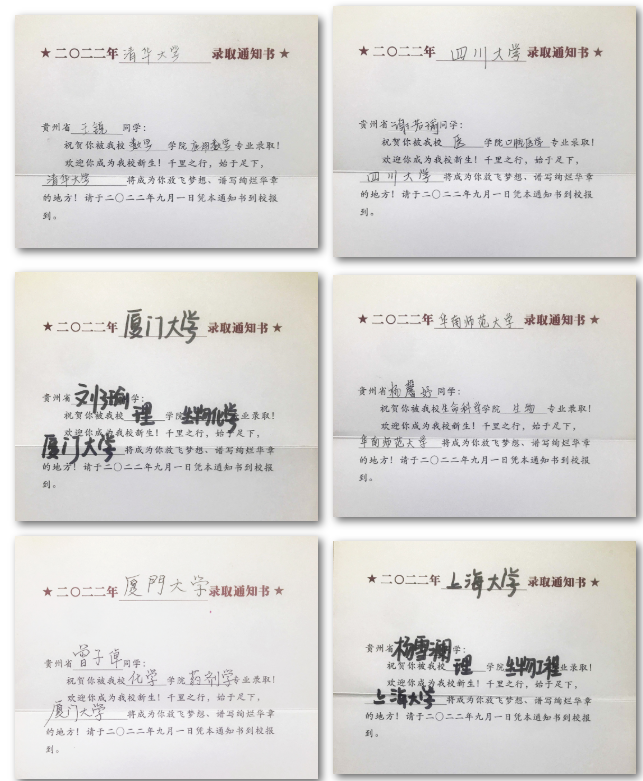 ★二〇二二年清华大学录取通知书★
贵州省王镜同学：
祝贺你被我校数学学院应用数学专业录取！
欢迎你成为我校新生！千里之行，始于足下，
清华大学将成为你放飞梦想、谱写绚烂华章
的地方！请于二〇二二年九月一日凭本通知书到校报
到。
★二〇二二年四川大学录取通知书★
贵州省同学：
祝贺你被我校医学院口腔医学专业录取！
欢迎你成为我校新生！千里之行，始于足下，
四川大学将成为你放飞梦想、谱写绚烂华章
的地方！请于二〇二二年九月一日凭本通知书到校报
到。
★二〇二二年厦门大学录取通知书★
贵州省刘子瑜同学：
祝贺你被我校理学院生物化学专业录取！
欢迎你成为我校新生！千里之行，始于足下，
厦门大学将成为你放飞梦想、谱写绚烂华章
的地方！请于二〇二二年九月一日凭本通知书到校报
到。
★二〇二二年华南师范大学录取通知书★
贵州省杨馨婷同学：
祝贺你被我校生命科学学院生物专业录取！
欢迎你成为我校新生！千里之行，始于足下，
华南师范大学将成为你放飞梦想、谱写绚烂华章
的地方！请于二〇二二年九月一日凭本通知书到校报
到。
★二〇二二年厦門大学录取通知书★
贵州省曾子倬同学：
祝贺你被我校化学学院药剂学专业录取！
欢迎你成为我校新生！千里之行，始于足下，
厦门大学将成为你放飞梦想、谱写绚烂华章
的地方！请于二〇二二年九月一日凭本通知书到校报
到。
★二〇二二年上海大学录取通知书★
贵州省杨雪澜同学：
祝贺你被我校理学院生物工程专业录取！
欢迎你成为我校新生！千里之行，始于足下，
上海大学将成为你放飞梦想、谱写绚烂华章
的地方！请于二〇二二年九月一日凭本通知书到校报
到。